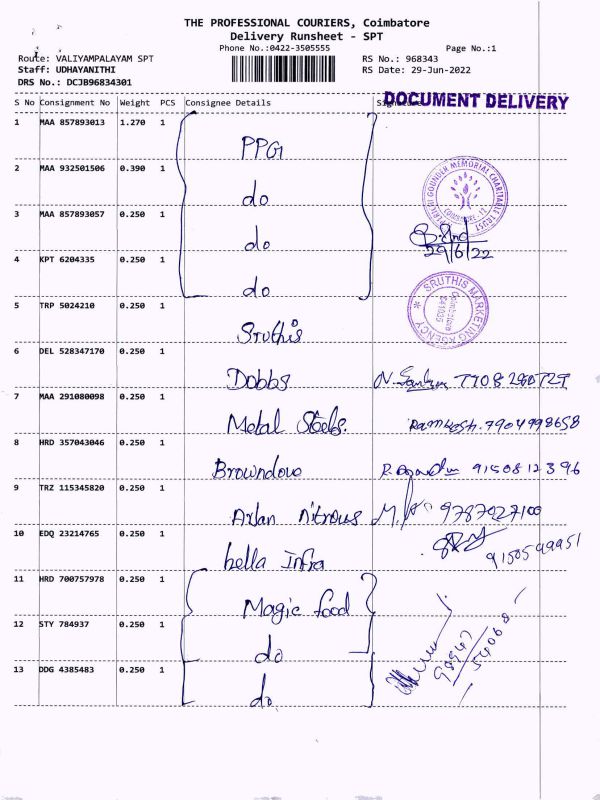 THE PROFESSIONAL COURIERS, Coimbatore
Delivery Runsheet - SPT
Phone No.:0422-3505555 Page No.:1
Route: VALIYAMPALAYAM SPT RS No.: 968343
Staff: UDHAYANITHI RS Date: 29-Jun-2022
DRS No.: DCJB96834301
S No Consignment No Weight PCS Consignee Details
DOCUMENT DELIVERY
1 MAA 857893013 1.270 1 PPG
2 MAA 932501506 0.390 1 do
3 MAA 857893057 0.250 1 do
29/6/22
4 KPT 6204335 0.250 1 do
5 TRP 5024210 0.250 1 Sruthis
SRUTHIS MARKETING AGENCY
Coimbatore
641035
6 DEL 528347170 0.250 1 Dobbs
7 MAA 291080098 0.250 1 Metal Steels. 7904998658
8 HRD 357043046 0.250 1 Browndove 9150812396
9 TRZ 115345820 0.250 1 Arlan nitrous 9787027100
10 EDQ 23214765 0.250 1 bella Infra
11 HRD 700757978 0.250 1 Magic food
12 STY 784937 0.250 1 do
13 DDG 4385483 0.250 1 do